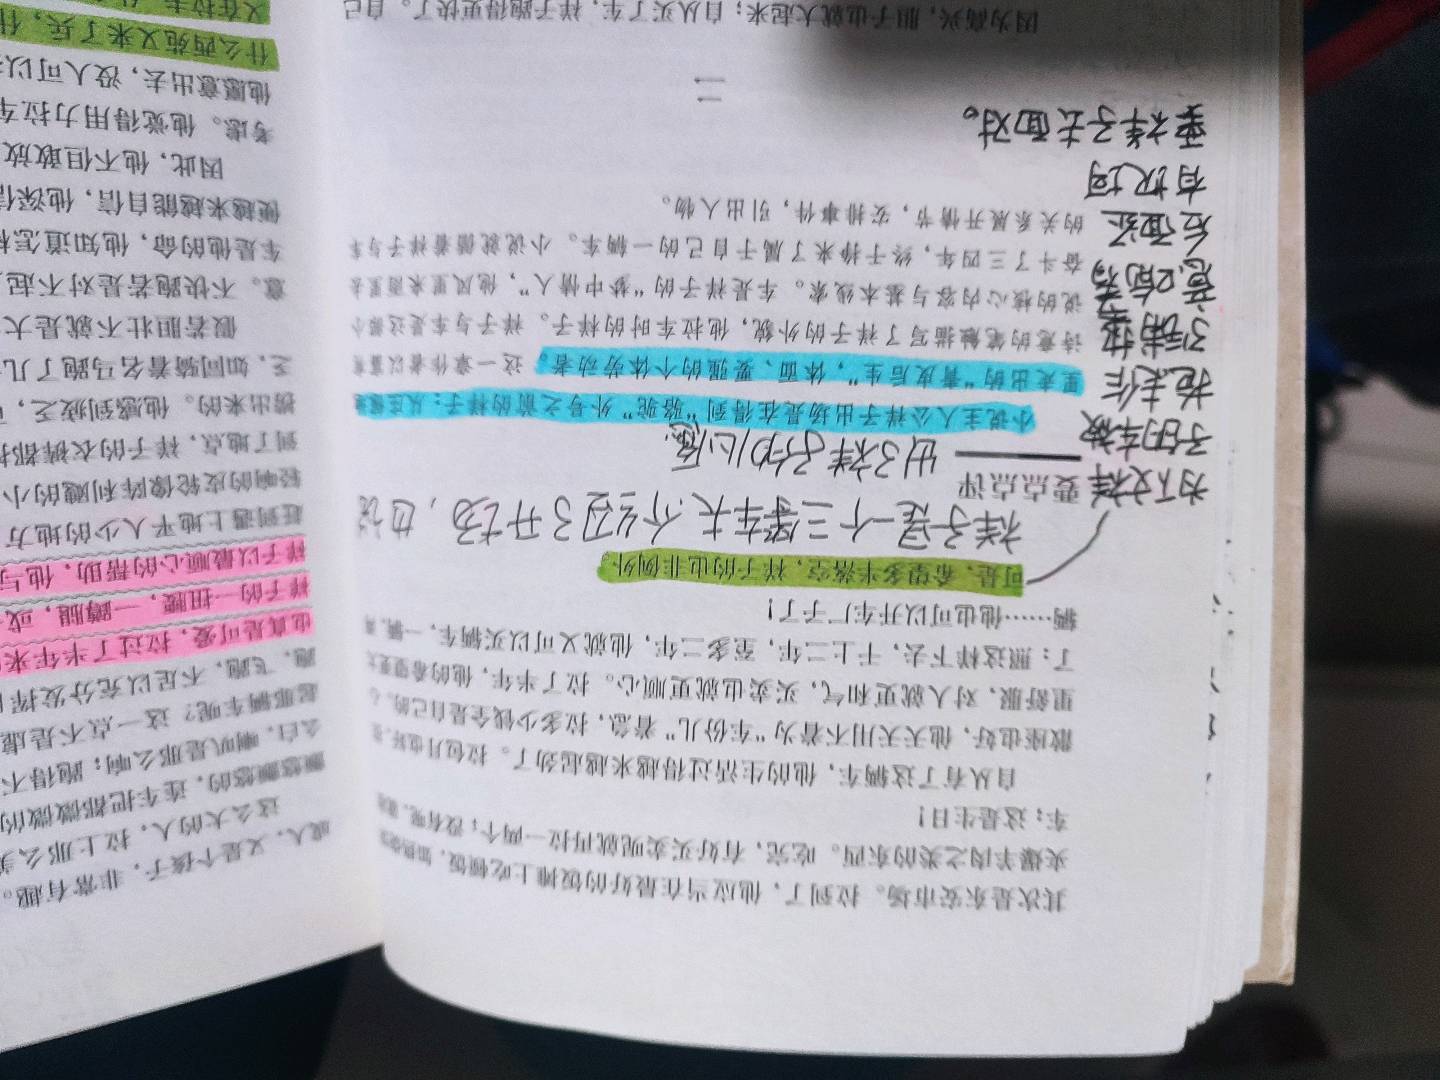 其次是东安市场。拉到了，他应当在最好的饭摊上吃顿饭，如热烧饼
夹爆羊肉之类的东西。吃完，有好买卖呢就再拉一两个；没有呢，就收
车；这是生日！
自从有了这辆车，他的生活过得越来越起劲了。拉包月也好，拉
散座也好，他天天用不着为“车份儿”着急，拉多少钱全是自己的。心
里舒服，对人就更和气，买卖也就更顺心。拉了半年，他的希望更大
了：照这样下去，干上二年，至多二年，他就又可以买辆车，一辆，两
辆……他也可以开车厂子了！
可是，希望多半落空，祥子的也非例外。
祥子是一个三等车夫.介绍了开场，也说
出了祥子的心愿.
要点点评
小说主人公祥子出场是在得到“骆驼”外号之前的样子：从庄稼地
里走出的“青皮后生”，体面、要强的个体劳动者。这一章作者以富有
诗意的笔触描写了祥子的外貌，他拉车时的样子。祥子与车是这部小
说的核心内容与基本线索。车是祥子的“梦中情人”，他风里来雨里去
奋斗了三四年，终于挣来了属于自己的一辆车。小说就循着祥子与车
的关系展开情节，安排事件，引出人物。
为下文祥
子的车被
抢走作
了铺垫
后面还
有坎坷
要祥子去面对。
二
因为高兴，胆子也就大起来；自从买了车，祥子跑得更快了。自己
成人，又是个孩子，非常有趣。
这么大的人，拉上那么美
颤悠颤悠的，连车把都微微的
么白，喇叭是那么响；跑得不
起那辆车呢？这一点不是虚
跑，飞跑，不足以充分发挥
也真是可爱，拉过了半年来
祥子的一扭腰，一蹲腿，或
祥子以最顺心的帮助，他与
赶到遇上地平人少的地方
轻响的皮轮像阵利飕的小
到了地点，祥子的衣裤都拧
捞出来的。他感到疲乏，可
乏，如同骑着名马跑了几
假若胆壮不就是大
意。不快跑若是对不起
车是他的命，他知道怎样
便越来越能自信，他深信
因此，他不但敢放
考虑。他觉得用力拉车
他愿意出去，没人可以
什么西苑又来了兵，什